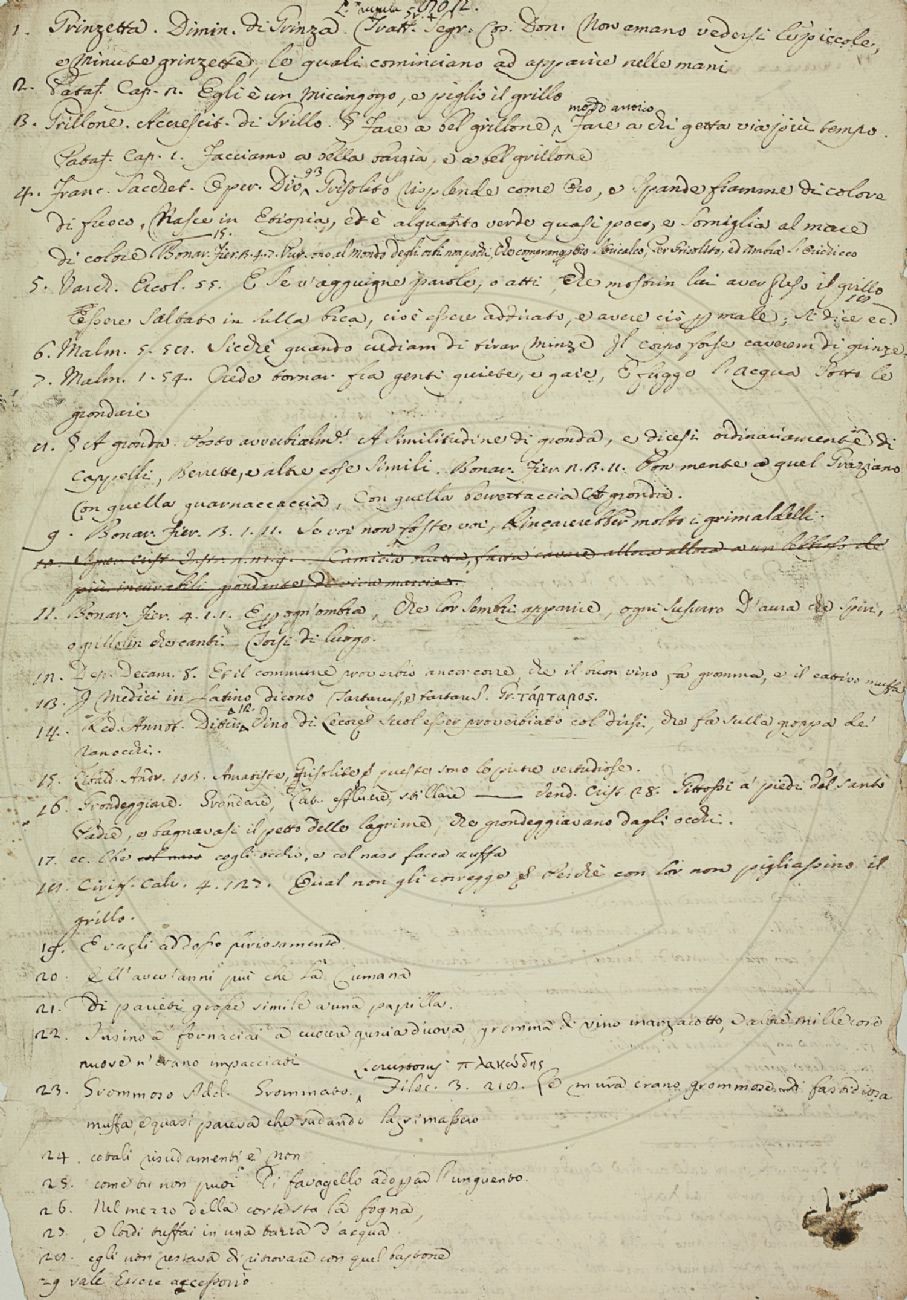 1. Grinzetta. Dimin. di Grinza. Tratt. Segr. Cos. Don. Non amano vedersi le piccole,
e minute grinzette, le quali cominciano ad apparire nelle mani
2. Pataff. Cap. 2. Egli è un micingogo, e pigliò il grillo
modo antico
3. Grillone. Accrescit. di Grillo. § Fare a bel grillone, Fare a chi getta via più tempo.
Pataff. Cap. 1. Facciamo a bella e a bel grillone
4. Franc. Sacchet. Oper. Div. 93 Grisolito risplende come Oro, e spande fiamme di colore
di fuoco, Nasce in Etiopia, ed è alquanto verde quasi poco, e somiglia al mare
di colore Bonar. Fier. 3. 4. 7.
5. Varch. Ercol. 55. E se v'aggiugne parole, o atti, che mostrin lui aver preso il grillo
Essere saltato in sulla bica, cioè essere adirato, e avere ciò per male; si dice ec.
6. Malm. 5. 58. Sicchè quando crediam di tirar minze Il corpo forse caverem di grinze.
7. Malm. 1. 54. Crede tornar fra genti quiete, e gaie, E fugge l'acqua sotto le
grondaie
8. § A gronda. Posto avverbialm. A similitudine di gronda, e dicesi ordinariamente di
Cappelli, Berrette, e altre cose simili. Bonar. Fier. 2. 3. 11. Pon mente a quel Graziano
Con quella guarnaccaccia, Con quella berrettaccia A gronda.
9. Bonar. Fier. 3. 1. 11. Se voi non foste voi, Rincarerebber molto i grimaldelli.
più incurabili grondante di viva marcia.
11. Bonar. Fier. 4. 1. 1. E ogn'ombra, che lor sembri apparire, ogni susurro D'aura che spiri,
o grillolin che canti. Forsi di luogo.
12. Dep. Decam. 8. Et il commune proverbio ancor corre, che il buon vino fa gromma, e il cattivo muffa
13. I Medici in Latino dicono Tartarus, e tartaru. Gr. τάρταρος.
14. Red. Annot. Ditir. 12. Vino di Lecore suol esser proverbiato col dirsi, che fa sulla groppa de'
ranocchi.
15. Ritald. Andr. 103. Amatiste, Grisolite queste sono le pietre vertudiose.
16. Grondeggiare. Grondare, Lat. effluere, stillare — Vend. Crist. 28. Gittossi a' piedi del santo
Padre, e bagnavasi il petto delle lagrime, che grondeggiavano dagli occhi.
17. ec. Che cogli occhi, e col naso facea zuffa
18. Ciriff. Calv. 4. 127. Qual non gli corregge Perchè con lor non pigliassino il
grillo.
19. E vagli addosso furiosamente
20. E ll'aver anni più che la Cumana
21. Di pareti grosse simile a una papilla.
22. Insino a' fornaciai a cuocer guscia d'uova, gromma di vino marzacotto, e altre mille cose
nuove n'erano impacciati
πλακώδης
23. Grommoso Add. Grommato. Filoc. 3. 218. Le mura erano grommose di fastidiosa
muffa e quasi pareva che sudando lagrimassero
24. cotali risudamenti e non
25. come tu non puoi Di favagello adoprar l'unguento.
26. Nel mezzo della cortesta la fogna,
27. E lordi tuffai in una tazza d'acqua
28. egli non restava di ritrovare con quel bastone
29 vale Essere accessorio